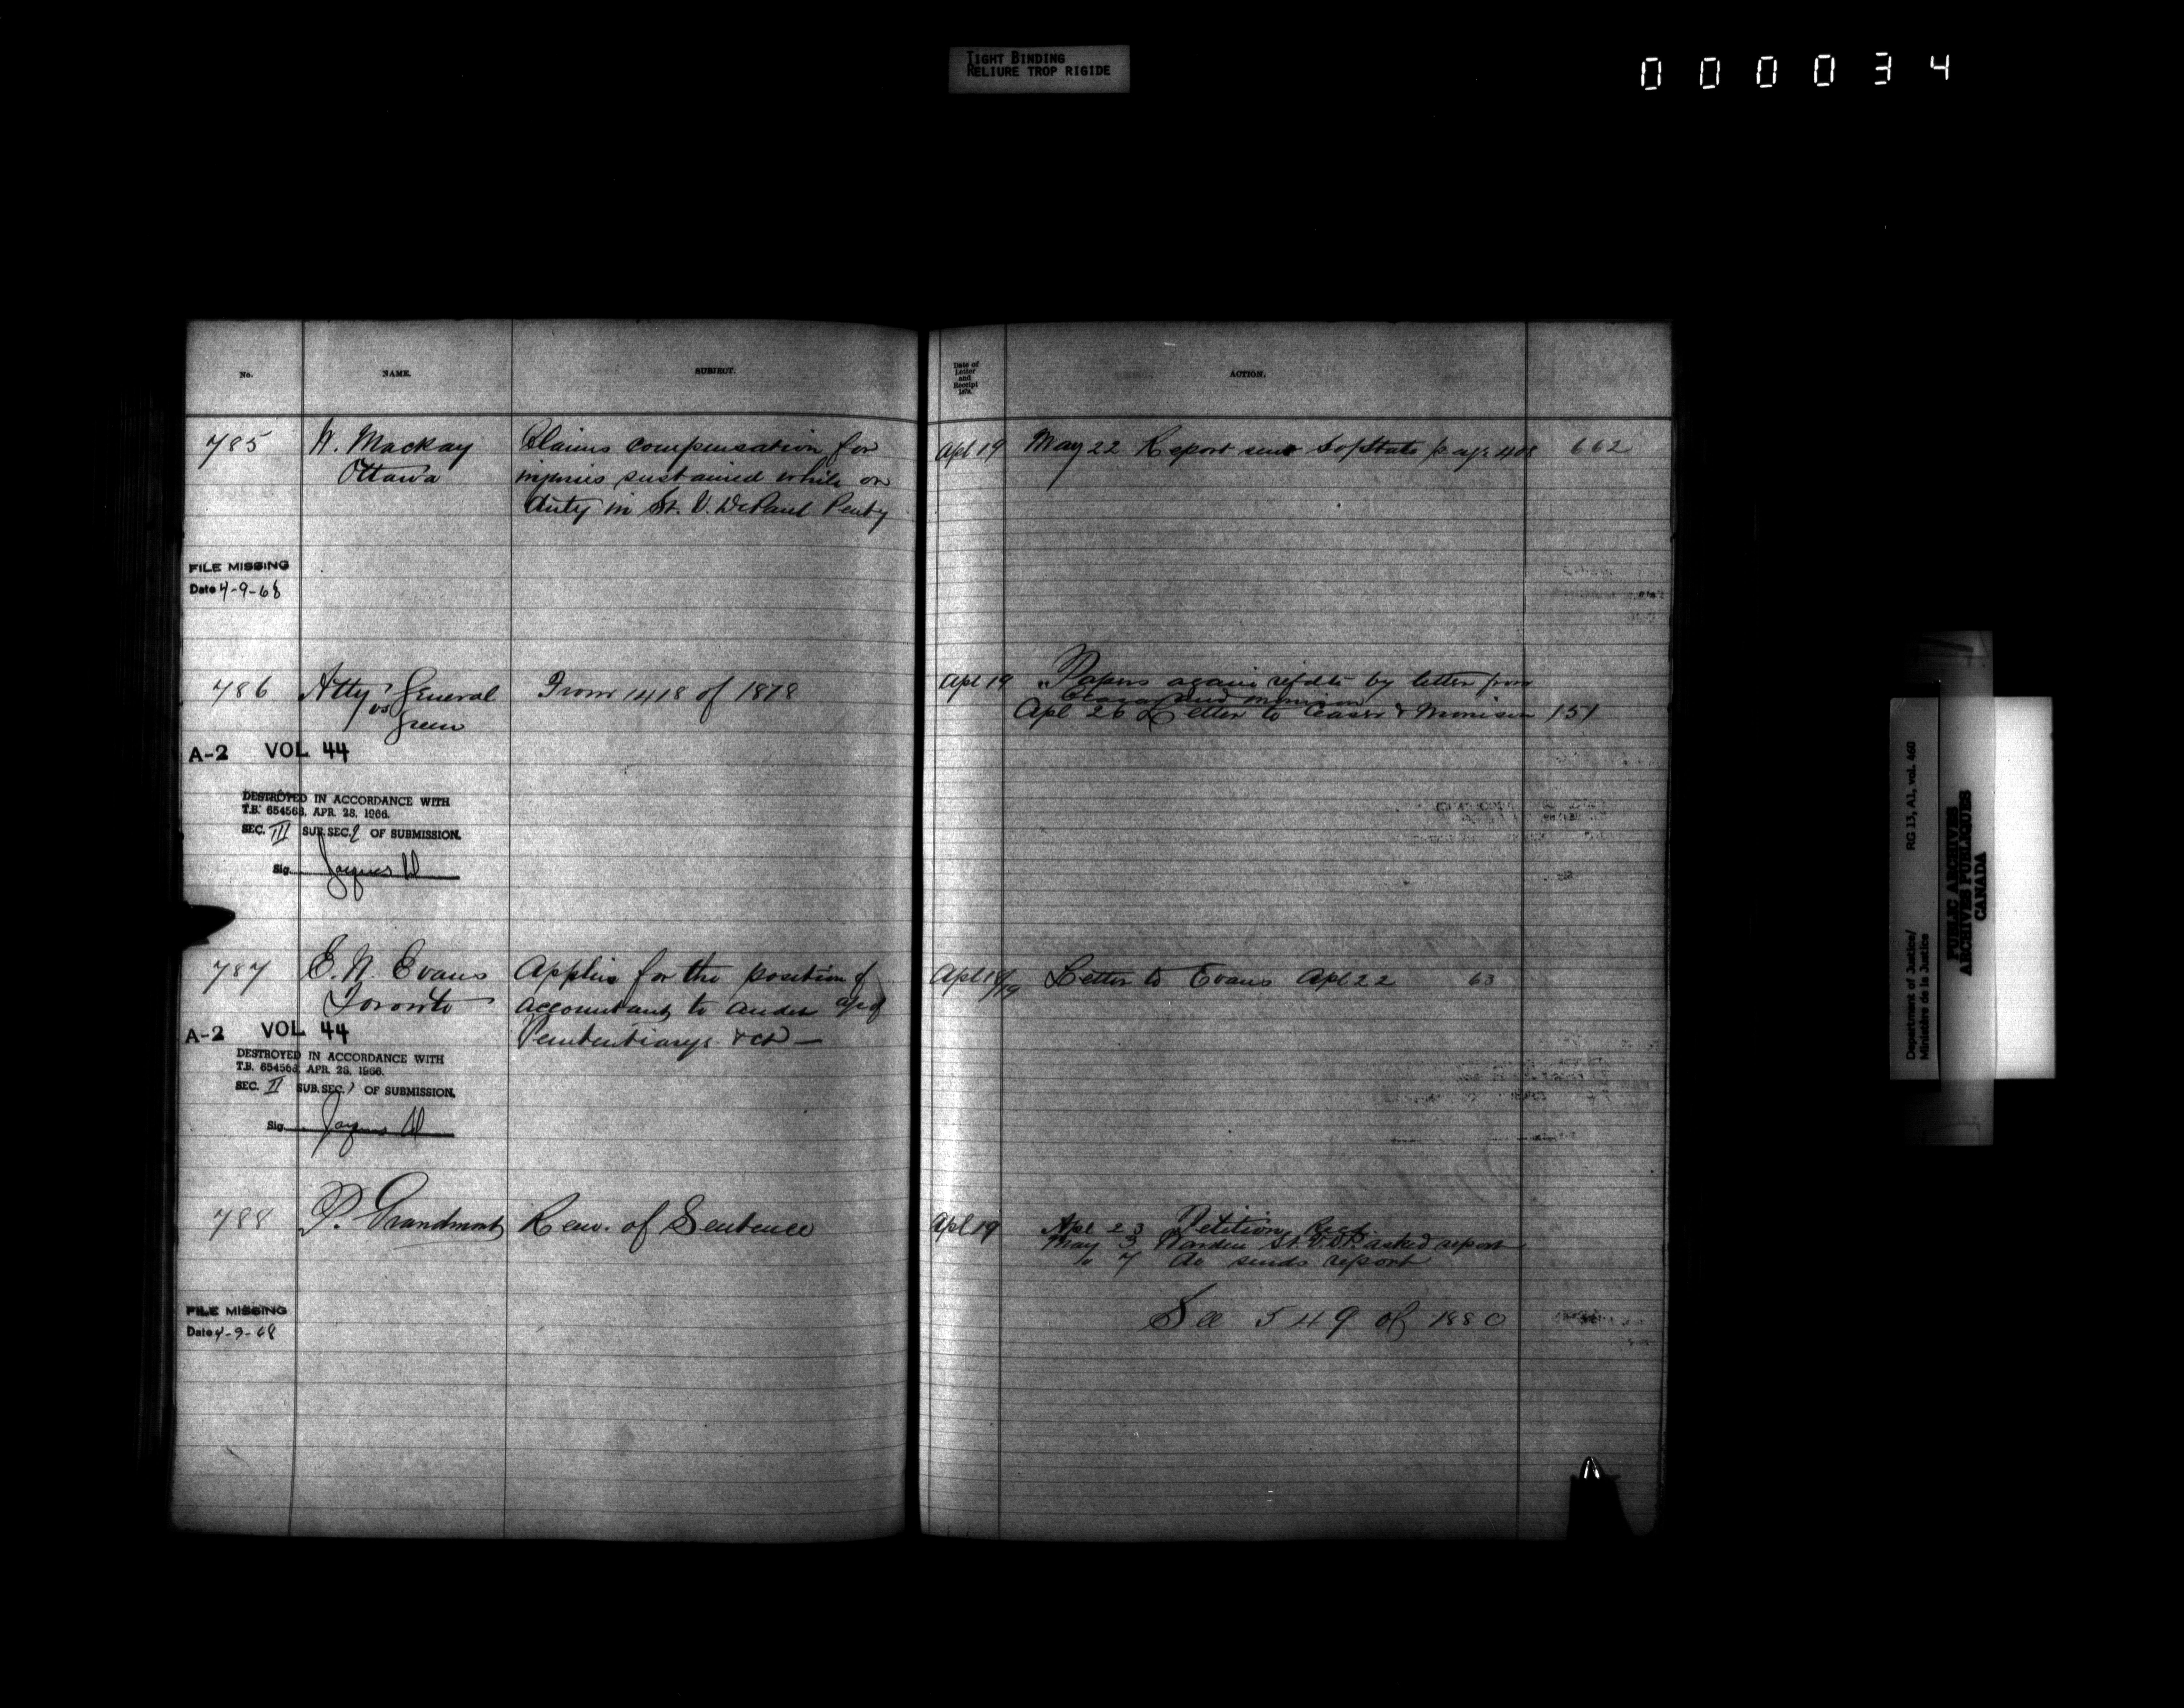 TIGHT BINDING
RELIURE TROP RIGIDE
000034
No. NAME. SUBJECT. Date of Letter and Receipt 187 . ACTION.
785 W. Mackay Claims compensation for Apl 19 May 22 Report sent S of State page 408 662
Ottawa injuries sustained while on
duty in St. V. DePaul Penty
FILE MISSING
Date 4-9-68
786 Atty General From 1418 of 1878 Apl 19 Papers again refd to by letter from
vs and Morrison
Green Apl 26 Letter to & Morrison 151
A-2 VOL 44
DESTROYED IN ACCORDANCE WITH
T.B. 654563, APR. 28, 1966.
SEC. III SUB.SEC. 2 OF SUBMISSION.
Sig. Jacques
787 E. N. Evans Applies for the position of Apl 18/19 Letter to Evans Apl 22 63
Toronto accountant to
Penitentiarys &c
A-2 VOL 44
DESTROYED IN ACCORDANCE WITH
T.B. 654563, APR. 28, 1966.
SEC. II SUB.SEC. 1 OF SUBMISSION.
Sig. Jacques
788 P. Grandmont Rem. of Sentence Apl 19 Apl 23 Petition Recd.
May 3 Warden St. V. DP. asked report
" 7 do sends report
See 549 of 1880
FILE MISSING
Date 4-9-68
Department of Justice/ RG 13, A1, vol. 460
Ministère de la Justice
PUBLIC ARCHIVES
ARCHIVES PUBLIQUES
CANADA